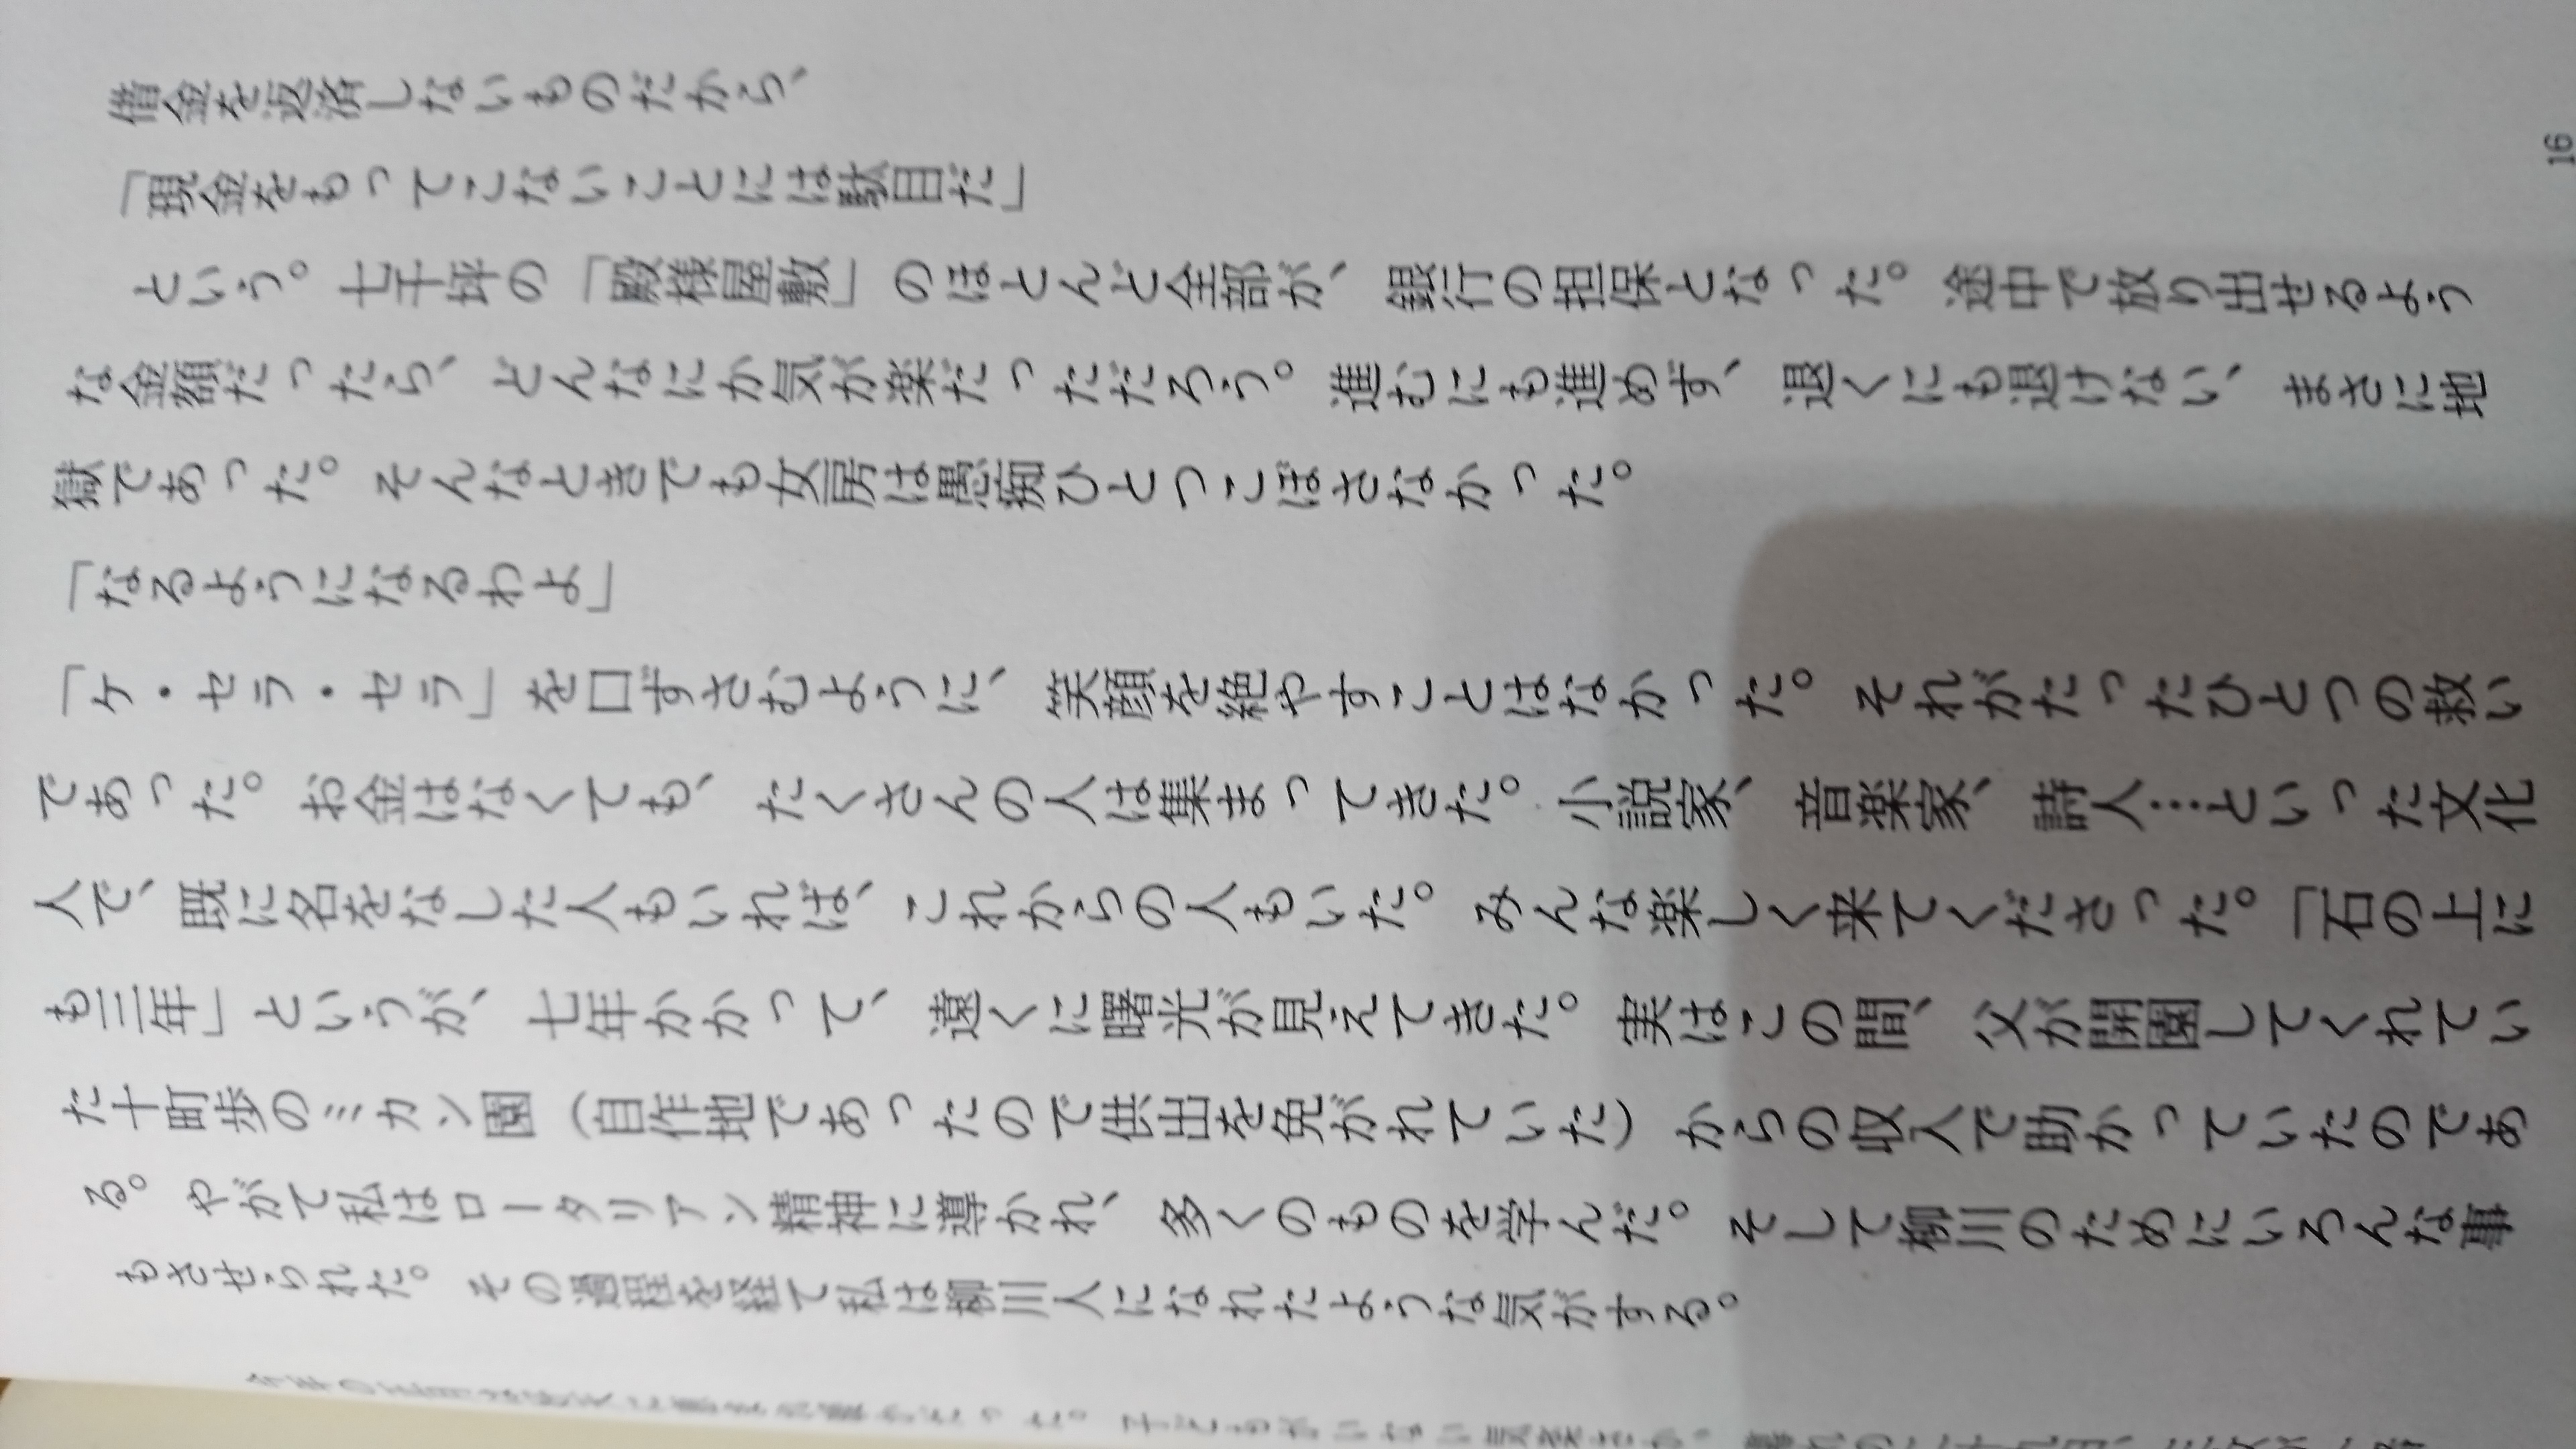 借金を返済しないものだから、
「現金をもってこないことには駄目だ」
という。七千坪の「殿様屋敷」のほとんど全部が、銀行の担保となった。途中で放り出せるよう
な金額だったら、どんなにか気が楽だっただろう。進むにも進めず、退くにも退けない、まさに地
獄であった。そんなときでも女房は愚痴ひとつこぼさなかった。
「なるようになるわよ」
「ケ・セラ・セラ」を口ずさむように、笑顔を絶やすことはなかった。それがたったひとつの救い
であった。お金はなくても、たくさんの人は集まってきた。小説家、音楽家、詩人…といった文化
人で、既に名をなした人もいれば、これからの人もいた。みんな楽しく来てくださった。「石の上に
も三年」というが、七年かかって、遠くに曙光が見えてきた。実はこの間、父が開園してくれてい
た十町歩のミカン園（自作地であったので供出を免がれていた）からの収入で助かっていたのであ
る。やがて私はロータリアン精神に導かれ、多くのものを学んだ。そして柳川のためにいろんな事
もさせられた。その過程を経て私は柳川人になれたような気がする。
16